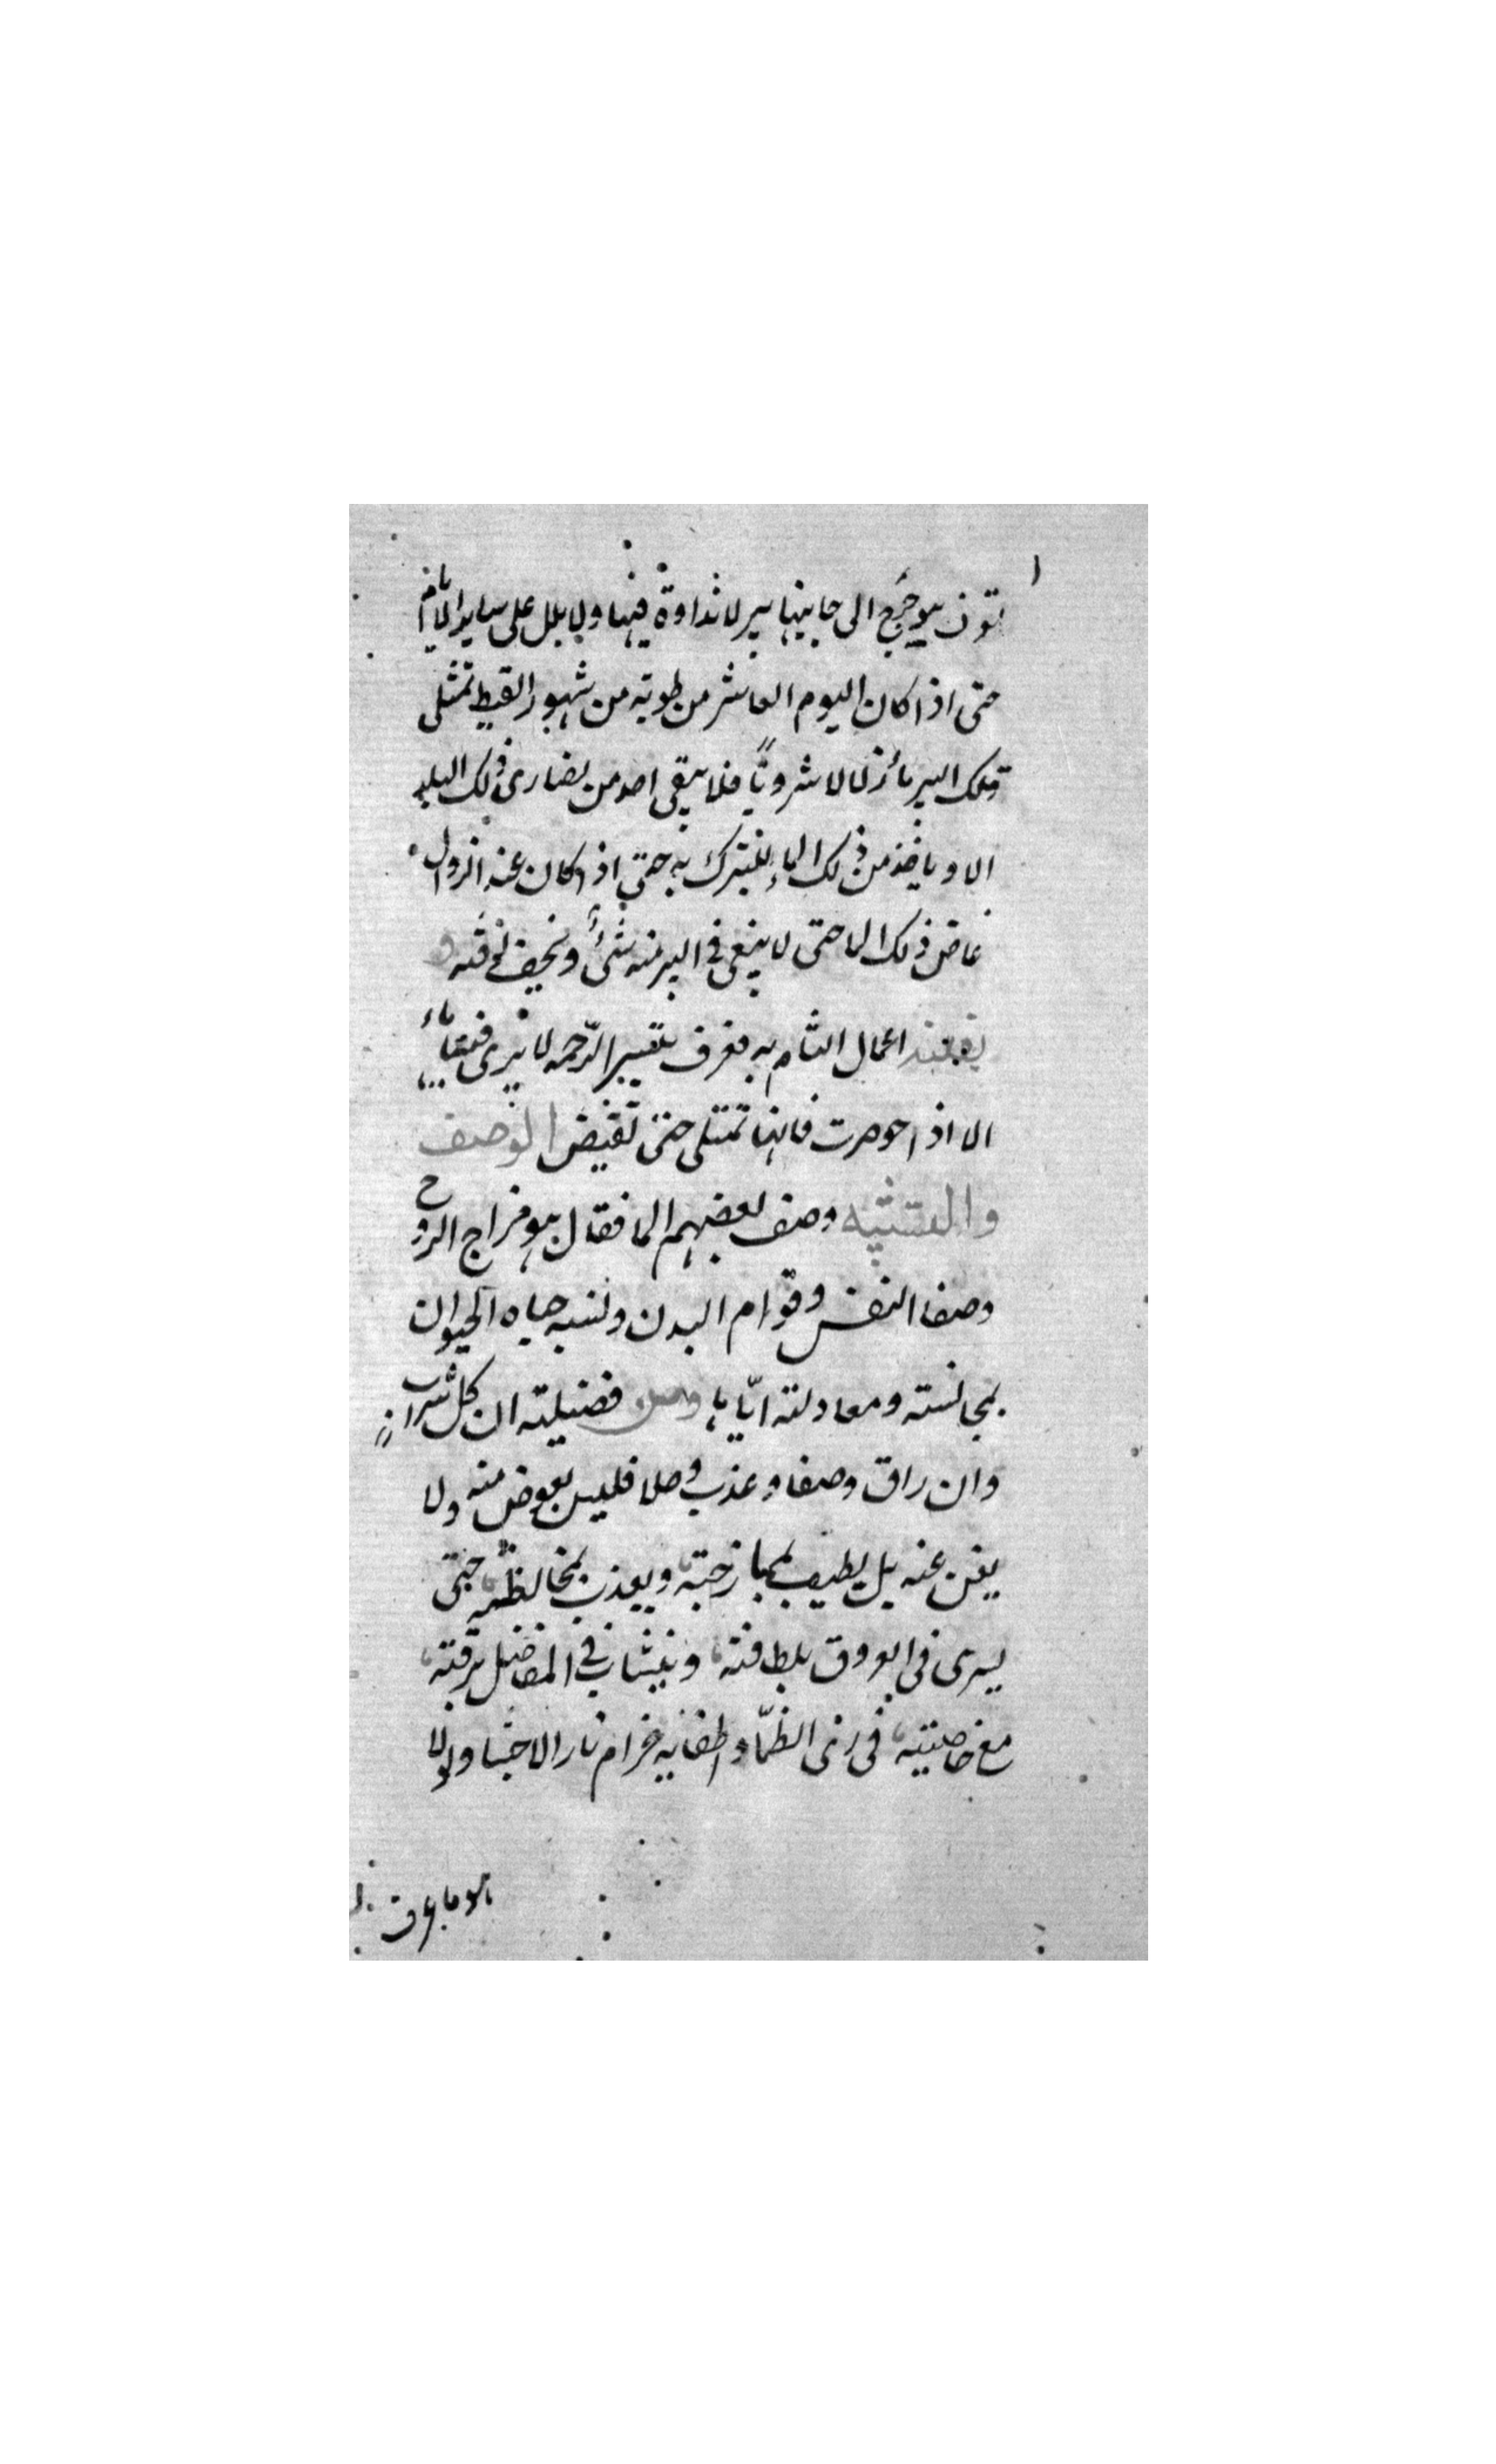 تون يوخرج الى جانبها بير لا نداوة فيها ولا بلل على ساير الايام
حتى اذا كان اليوم العاشر من طوبه من شهور القبط تمتلى
تلك البير ماء زلالا شروبًا فلا يبقى احد من نصارى ذلك البلد
الا وياخذ من ذلك الماء للتبرك به حتى اذا كان عند الزوال
غاض ذلك الما حتى لا يبقى في البير منه شئ ويجف لوقته و
اعمال الشام به تعرف الرحمه لا يرى فيها ماء
الا اذا حوصرت فانها تمتلى حتى تفيض الوصف
والتشبيه وصف بعضهم الما فقال هو مزاج الروح
وصفا النفس وقوام البدن ونسبه حياه الحيوان
بمجانسته ومعادلته اياها ومن فضيلته ان كل شراب
وان راق وصفا وعذب وحلا فليس بعوض منه ولا
يغن عنه بل يطيب بممازجته ويعذب بمخالطته حتى
يسرى في العروق بلطافته وينشاب في المفاصل برقته
مع خاصيته في رى الظمّا واطفايه ضرام نار الاحشا ولولا